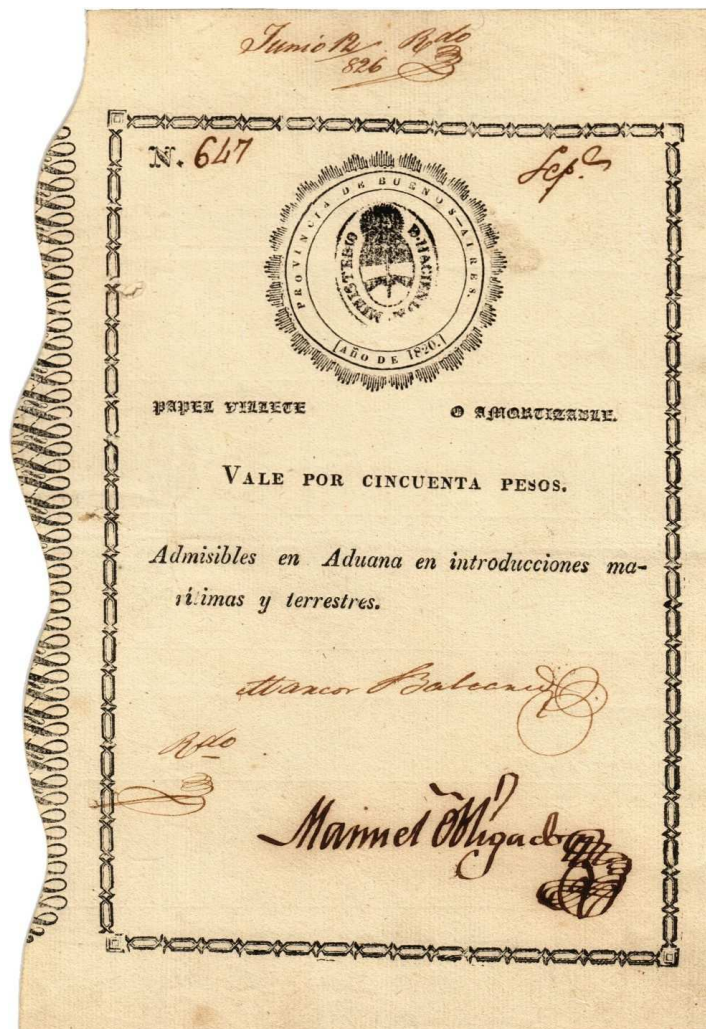 Junio 12 Rdo
826
N. 647
Sep.e
PROVINCIA DE BUENOS=AIRES.
MINISTERIO D. HACIENDA
AÑO DE 1820.
PAPEL VILLETE O AMORTIZABLE.
VALE POR CINCUENTA PESOS.
Admisibles en Aduana en introducciones ma-
rítimas y terrestres.
Marcos Balcarce
Rdo
Manuel Obligado